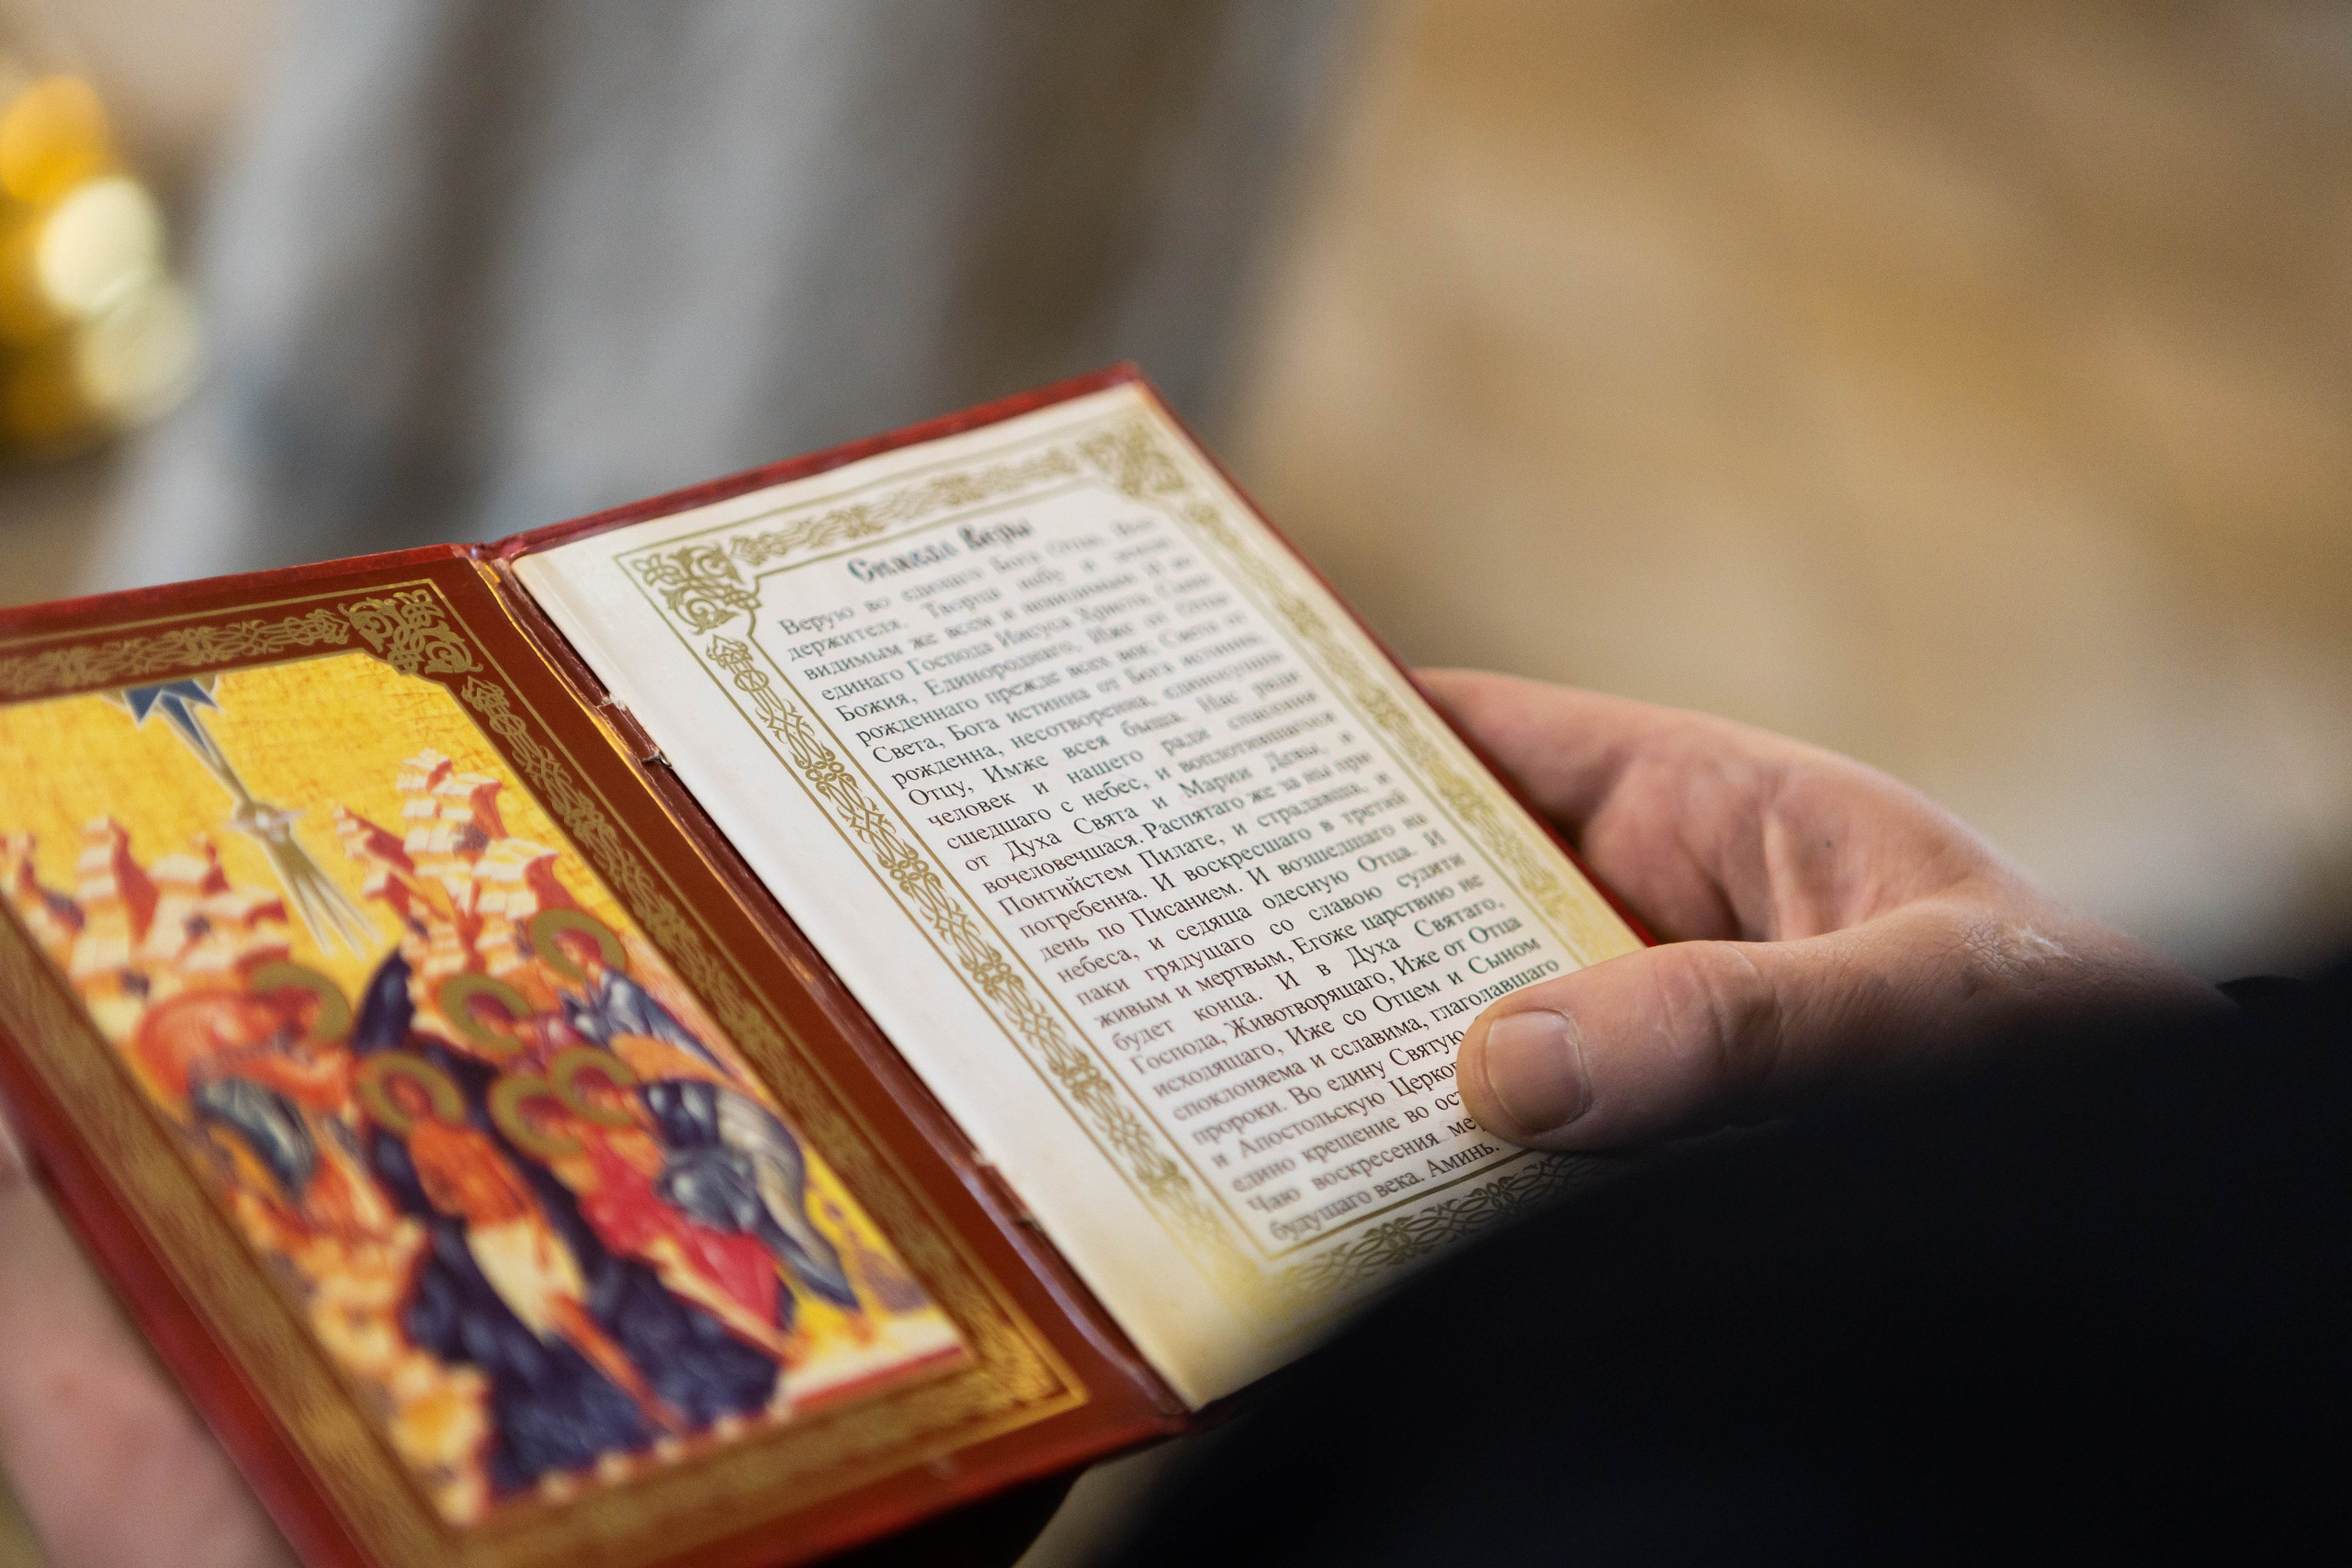 Символ Веры
Верую во единаго Бога Отца Все-
держителя. Творца небу и земли,
видимым же всем и невидимым. И во
единаго Господа Иисуса Христа, Сына
Божия, Единороднаго, Иже от Отца
рожденнаго прежде всех век; Света от
Света, Бога истинна от Бога истинна,
рожденна, несотворенна, единосущна
Отцу, Имже вся быша. Нас ради
человек и нашего ради спасения
сшедшаго с небес, и воплотившагося
от Духа Свята и Марии Девы, и
вочеловечшася. Распятаго же за ны при
Понтийстем Пилате, и страдавша, и
погребенна. И воскресшаго в третий
день по Писанием. И возшедшаго на
небеса, и седяща одесную Отца. И
паки грядущаго со славою судити
живым и мертвым, Егоже царствию не
будет конца. И в Духа Святаго,
Господа, Животворящаго, Иже от Отца
исходящаго, Иже со Отцем и Сыном
споклоняема и сславима, глаголавшаго
пророки. Во едину Святую
и Апостольскую Церков
едино крещение во ост
Чаю воскресения ме
будущаго века. Аминь.